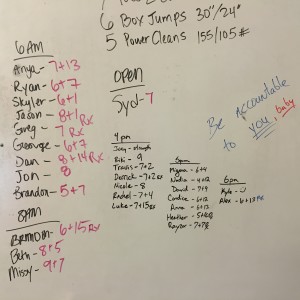 6 Box Jumps 30"/24"
5 Power Cleans 155/105#
6AM
Anya - 7+13
Ryan - 6+7
Skyler - 6+1
Jason - 8+1 Rx
Greg - 7 Rx
George - 6+7
Dan - 8+14 Rx
Jon - 8
Brandon - 5+7
8AM
Brandon - 6+15 Rx
Beth - 8+5
Missy - 9+7
OPEN
Syd - 7
4pm
Joey - strength
Riki - 9
Travis - 7+2
Derrick - 7+2 Rx
Nicole - 8
Rachel - 7+4
Luke - 7+15 Rx
5pm
Migma - 6+4
Nadia - 4+12
David - 7+9
Candice - 6+12
Anna - 6+13
Heather - 5+
Rayan - 7+7
6pm
Kyle -
Alex - 6+13 Rx
Be Accountable
to you, baby